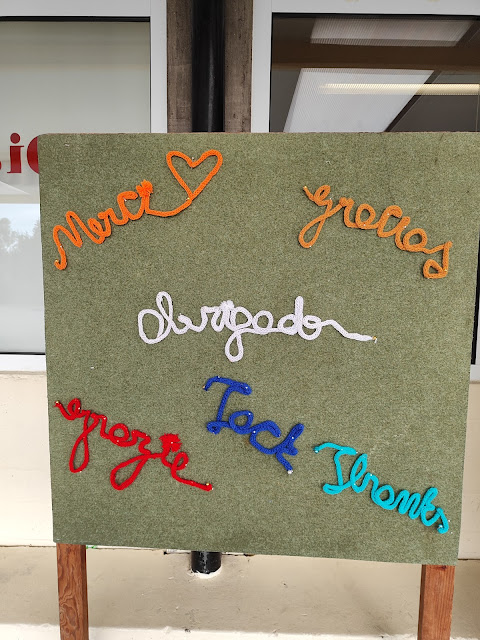 Merci
gracias
obrigado
grazie
Tack
Thanks